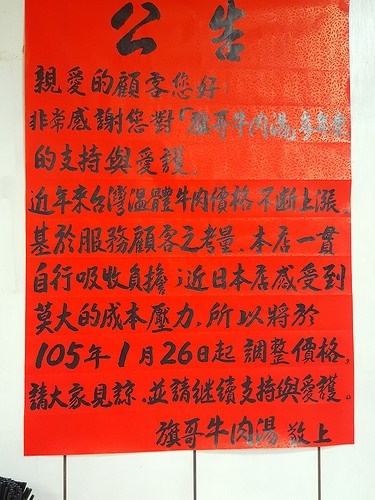 公告
親愛的顧客您好!
非常感謝您對「旗哥牛肉湯」多年來
的支持與愛護,
近年來台灣溫體牛肉價格不斷上漲,
基於服務顧客之考量,本店一貫
自行吸收負擔;近日本店感受到
莫大的成本壓力,所以將於
105年1月26日起調整價格,
請大家見諒,並請繼續支持與愛護。
旗哥牛肉湯 敬上